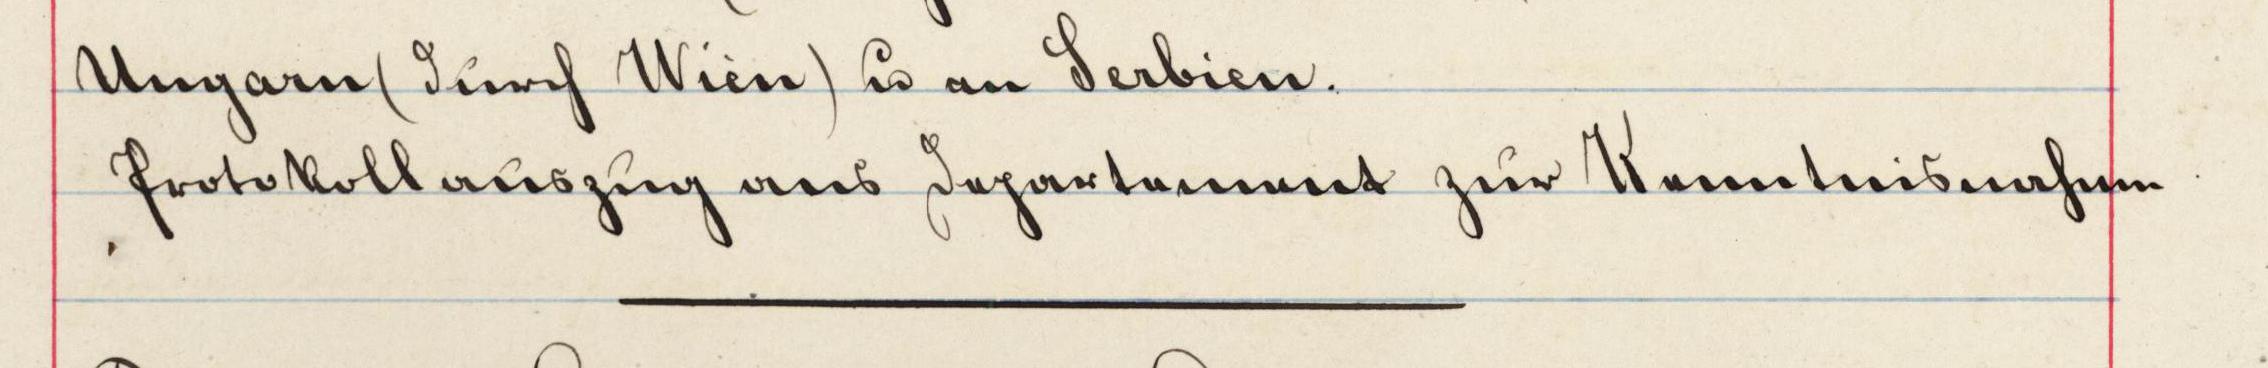 Ungarn (durch Wien) u an Serbien.
Protokollauszug ans Departement zur Kenntnisnahme